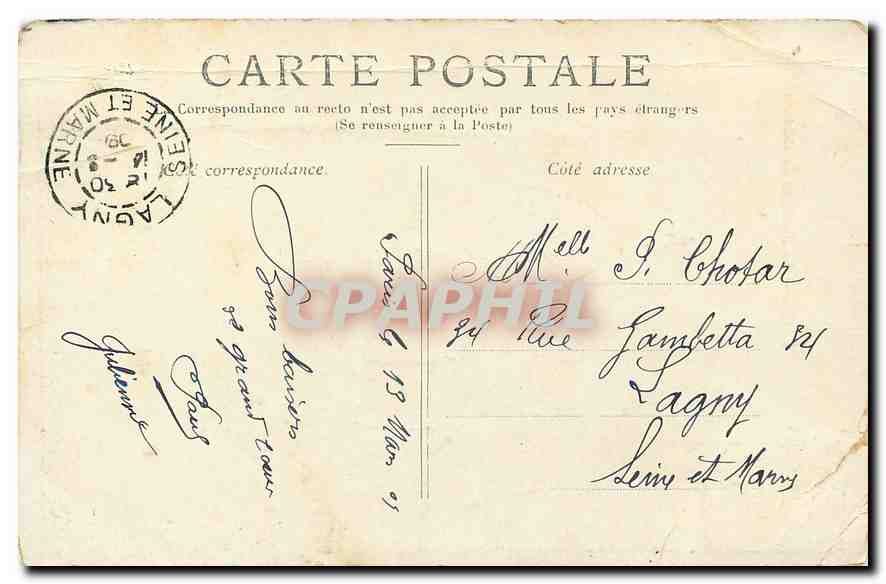 CARTE POSTALE
Correspondance au recto n'est pas acceptée par tous les pays étrangers
(Se renseigner à la Poste)
correspondance.
Côté adresse
LAGNY
SEINE ET MARNE
30
Paris le 13 Mars 09
Bons baisers
de grand cœur
Paul
Julienne
Mell P. Chotar
34 Rue Gambetta 34
Lagny
Seine et Marne
CPAPHIL